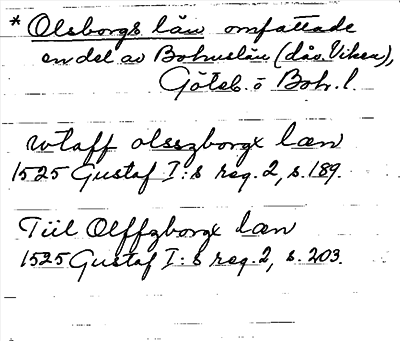 * Olsborgs län omfattade
en del av Bohuslän (dåv. Viken),
Göteb. o Boh. l.
wtaff olsszborgx læn
1525 Gustaf I:s reg. 2, s. 189.
Tiil Olffzborgx læn
1525 Gustaf I:s reg. 2, s. 203.